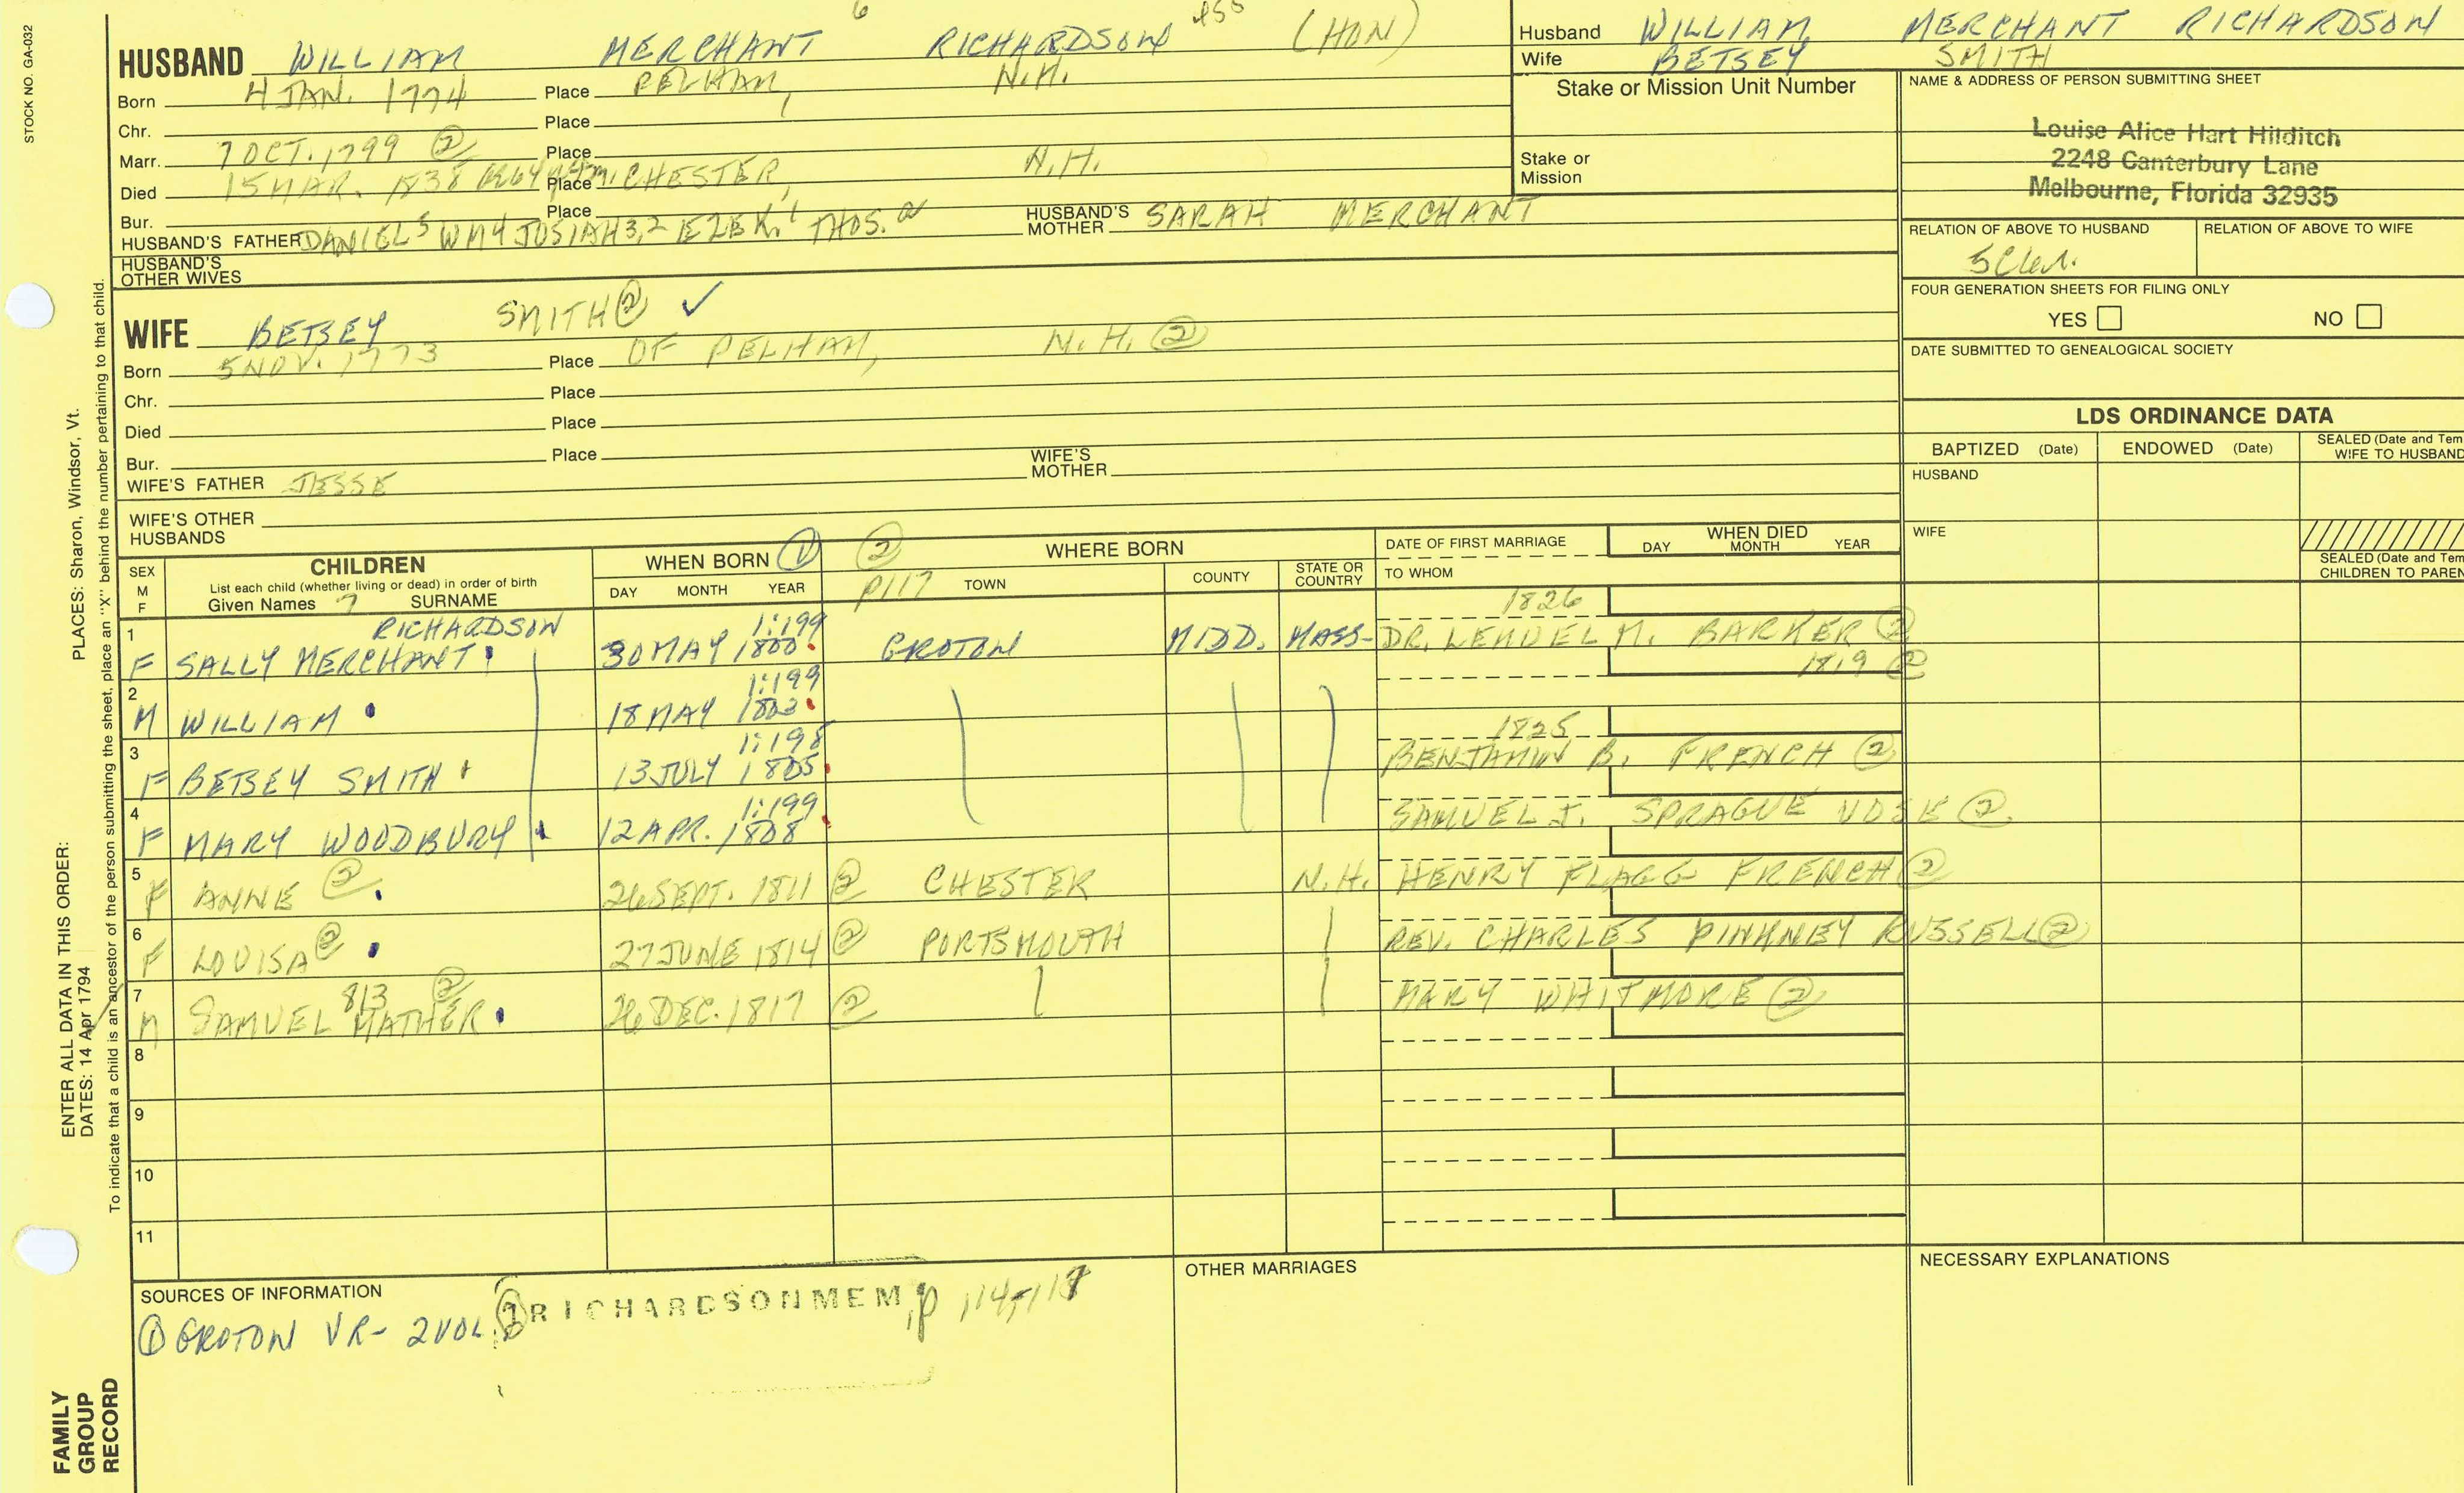 STOCK NO. GA-032
6 455
HUSBAND WILLIAM MERCHANT RICHARDSON (HON)
Born 4 JAN. 1774 Place PELHAM, N.H.
Chr. Place
Marr. 7 OCT. 1799 ② Place
Died 15 MAR. 1838 Place CHESTER, N.H.
Bur. Place
HUSBAND'S FATHER DANIEL 5 WM 4 JOSIAH 3,2 EZEK. 1 THOS. a HUSBAND'S MOTHER SARAH MERCHANT
HUSBAND'S OTHER WIVES
WIFE BETSEY SMITH ② ✓
Born 5 NOV. 1773 Place OF PELHAM, N.H. ②
Chr. Place
Died Place
Bur. Place
WIFE'S FATHER JESSE WIFE'S MOTHER
WIFE'S OTHER HUSBANDS
Husband WILLIAM MERCHANT RICHARDSON
Wife BETSEY SMITH
Stake or Mission Unit Number
Stake or Mission
NAME & ADDRESS OF PERSON SUBMITTING SHEET
Louise Alice Hart Hilditch
2248 Canterbury Lane
Melbourne, Florida 32935
RELATION OF ABOVE TO HUSBAND RELATION OF ABOVE TO WIFE
FOUR GENERATION SHEETS FOR FILING ONLY
YES NO
DATE SUBMITTED TO GENEALOGICAL SOCIETY
LDS ORDINANCE DATA
BAPTIZED (Date) ENDOWED (Date) SEALED (Date and Tem
WIFE TO HUSBAND
HUSBAND
WIFE
SEALED (Date and Tem
CHILDREN TO PAREN
SEX M F CHILDREN
List each child (whether living or dead) in order of birth
Given Names 7 SURNAME
WHEN BORN ① DAY MONTH YEAR
② P117 WHERE BORN TOWN COUNTY STATE OR COUNTRY
DATE OF FIRST MARRIAGE
TO WHOM
WHEN DIED DAY MONTH YEAR
RICHARDSON 1:199 1826
1 F SALLY MERCHANT 30 MAY 1800 GROTON MIDD. MASS- DR. LEMUEL M. BARKER ②
1:199 1819 ②
2 M WILLIAM 18 MAY 1803
1:198 1825
3 F BETSEY SMITH 13 JULY 1805 BENJAMIN B. FRENCH ②
1:199
4 F MARY WOODBURY 12 APR. 1808 SAMUEL J. SPRAGUE VOSE ②
5 F ANNE ② 26 SEPT. 1811 ② CHESTER N.H. HENRY FLAGG FRENCH ②
6 F LOUISA ② 27 JUNE 1814 ② PORTSMOUTH REV. CHARLES PINKNEY RUSSELL ②
813 ②
7 M SAMUEL MATHER 26 DEC. 1817 ② MARY WHITMORE ②
8
9
10
11
SOURCES OF INFORMATION
① GROTON VR- 2 VOL. ② RICHARDSON MEM, p 114, 117
OTHER MARRIAGES
NECESSARY EXPLANATIONS
PLACES: Sharon, Windsor, Vt.
ENTER ALL DATA IN THIS ORDER:
DATES: 14 Apr 1794
To indicate that a child is an ancestor of the person submitting the sheet, place an "X" behind the number pertaining to that child.
FAMILY
GROUP
RECORD